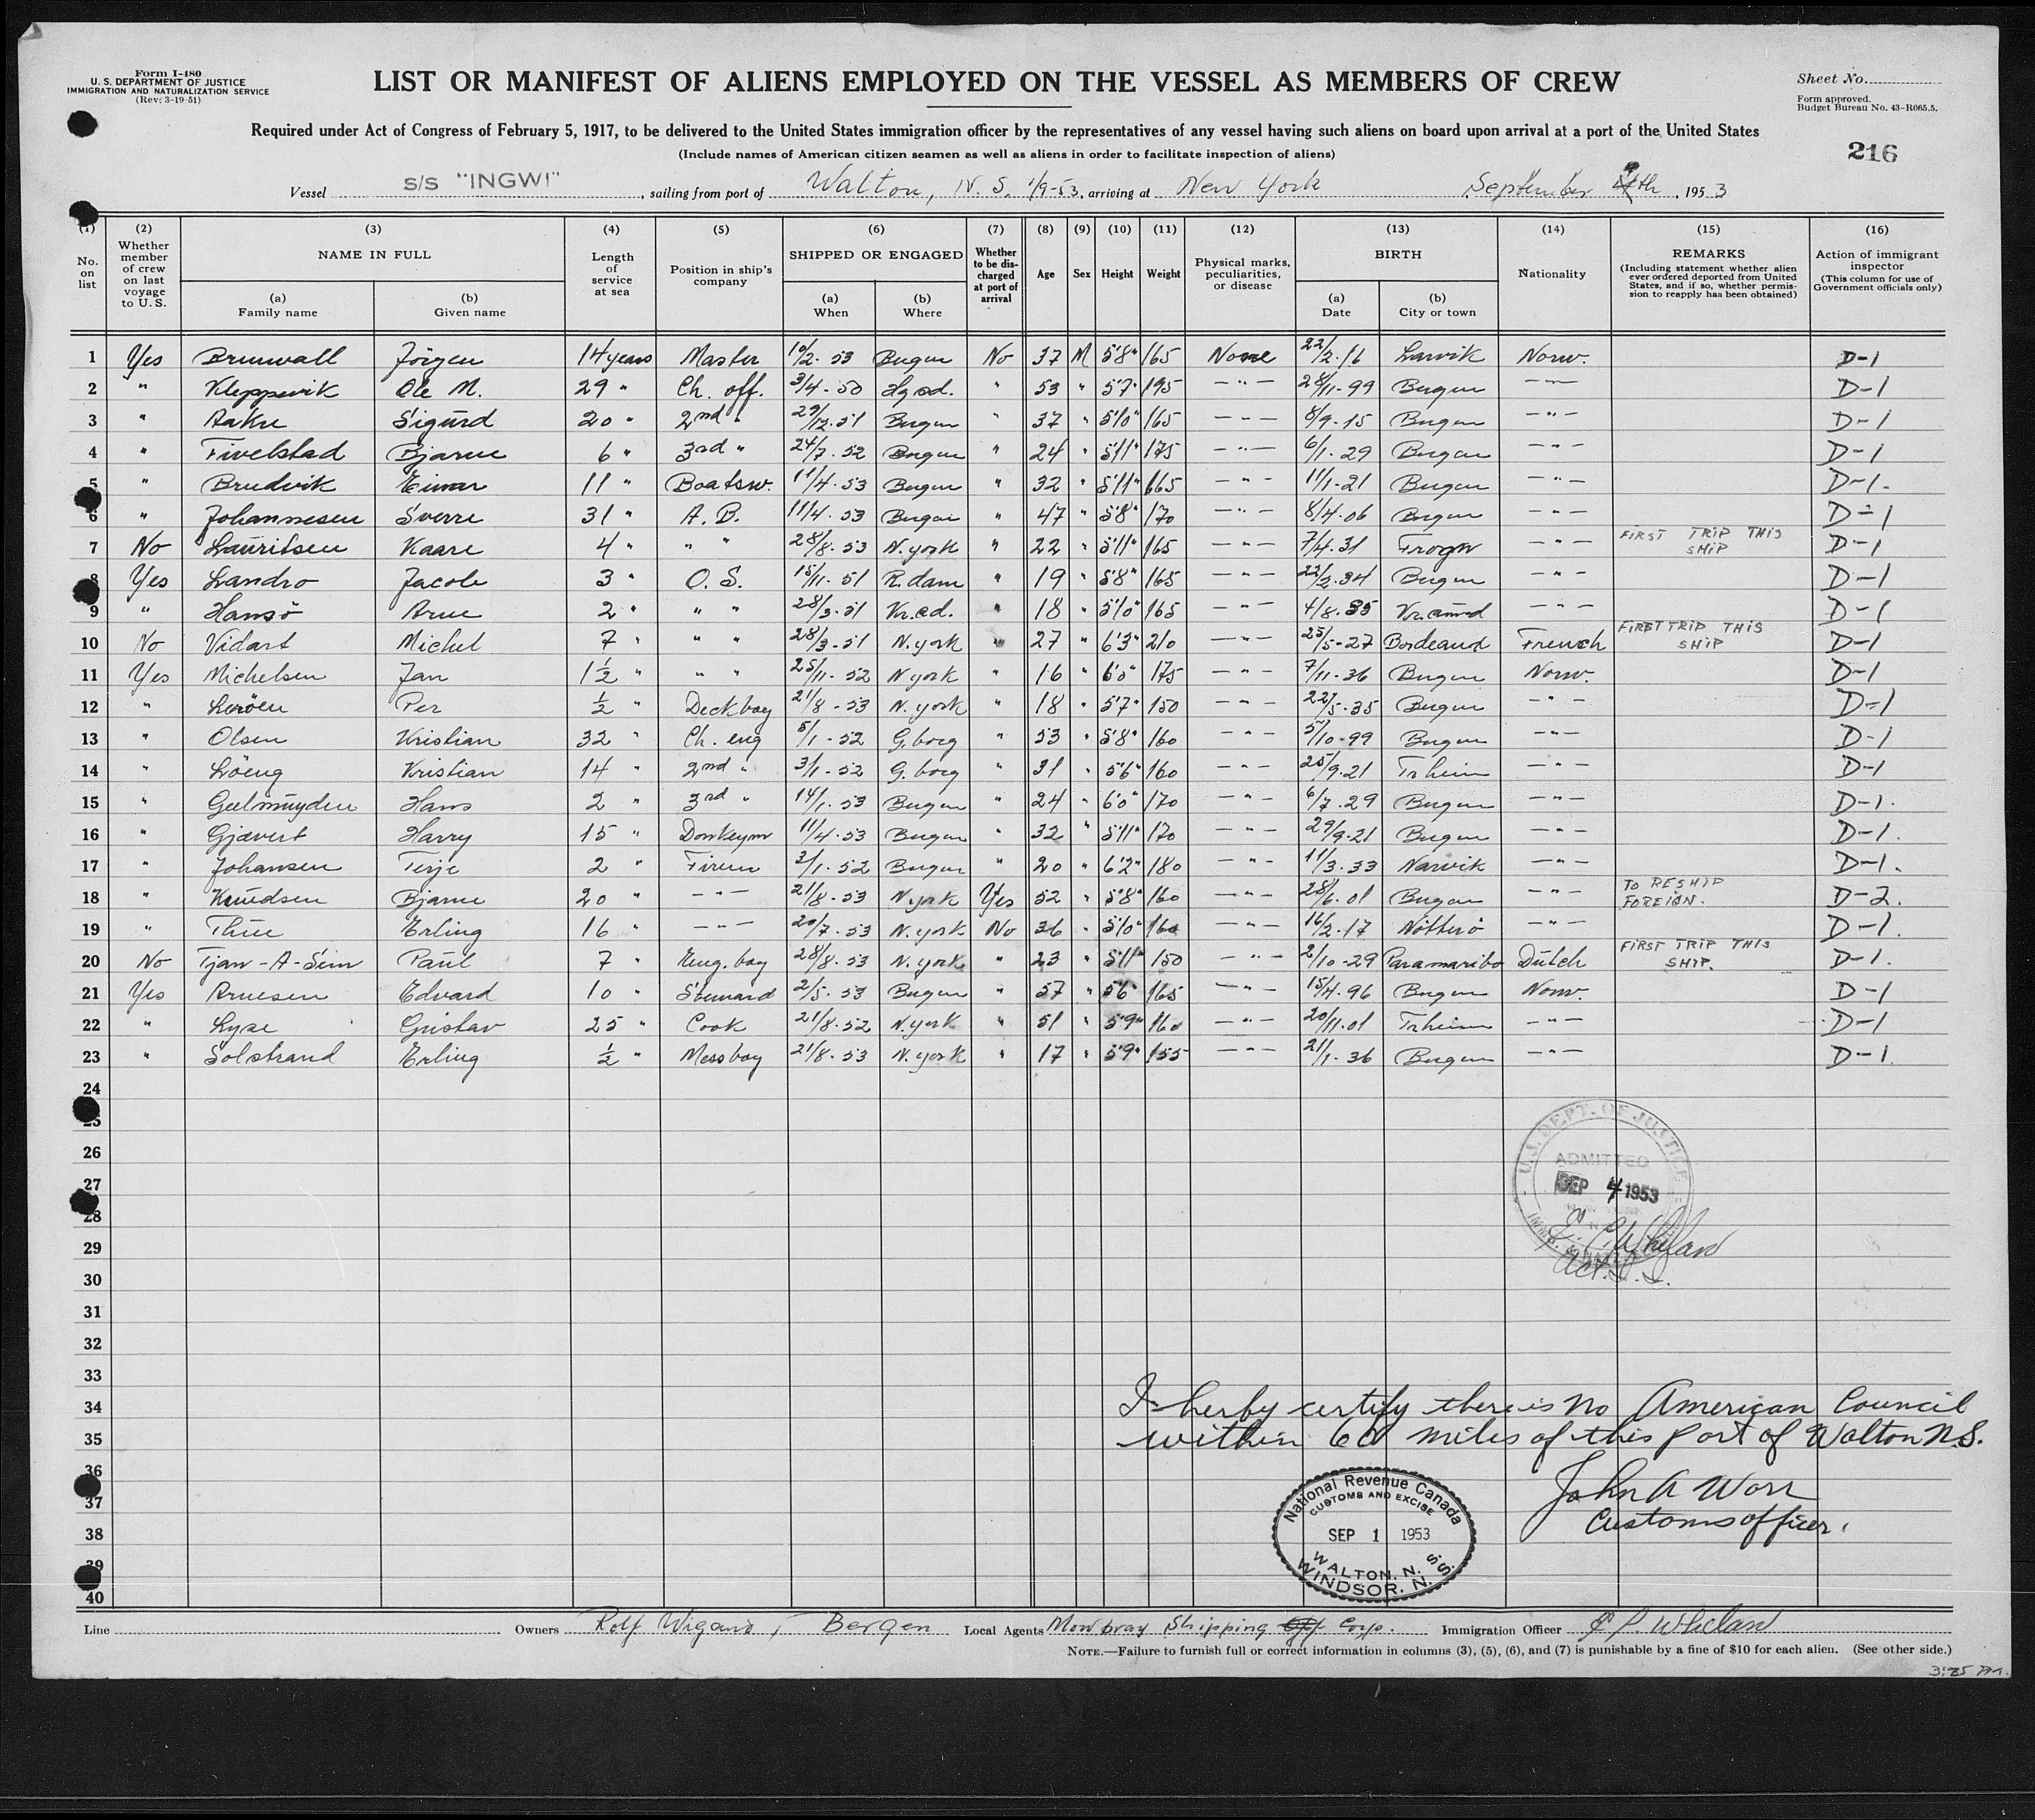 Form I-480
U. S. DEPARTMENT OF JUSTICE
IMMIGRATION AND NATURALIZATION SERVICE
(Rev: 3-19-51)
LIST OR MANIFEST OF ALIENS EMPLOYED ON THE VESSEL AS MEMBERS OF CREW
Sheet No.
Form approved.
Budget Bureau No. 43-R065.5.
Required under Act of Congress of February 5, 1917, to be delivered to the United States immigration officer by the representatives of any vessel having such aliens on board upon arrival at a port of the United States
(Include names of American citizen seamen as well as aliens in order to facilitate inspection of aliens)
216
Vessel S/S "INGWI", sailing from port of Walton, N. S. 1/9-53, arriving at New York September th, 1953
(1) No. on list
(2) Whether member of crew on last voyage to U. S.
(3) NAME IN FULL (a) Family name (b) Given name
(4) Length of service at sea
(5) Position in ship's company
(6) SHIPPED OR ENGAGED (a) When (b) Where
(7) Whether to be discharged at port of arrival
(8) Age
(9) Sex
(10) Height
(11) Weight
(12) Physical marks, peculiarities, or disease
(13) BIRTH (a) Date (b) City or town
(14) Nationality
(15) REMARKS (Including statement whether alien ever ordered deported from United States, and if so, whether permission to reapply has been obtained)
(16) Action of immigrant inspector (This column for use of Government officials only)
1 Yes Brunvall Jörgen 14 years Master 10/2. 53 Bergen No 37 M 5'8" 165 None 22/2. 16 Larvik Norw. D-1
2 " Kleppevik Ole M. 29 " Ch. off. 3/4. 50 " 53 " 5'7" 195 -"- 28/11-99 Bergen -"- D-1
3 " Aakre Sigurd 20 " 2nd " 29/12. 51 Bergen " 37 " 5'10" 165 -"- 8/9-15 Bergen -"- D-1
4 " Fivelstad Bjarne 6 " 3rd " 24/7. 52 Bergen " 24 " 5'11" 175 -"- 6/1. 29 Bergen -"- D-1
5 " Brudvik Einar 11 " Boatsw. 11/4. 53 Bergen " 32 " 5'11" 165 -"- 11/1-21 Bergen -"- D-1.
6 " Johannesen Sverre 31 " A. B. 11/4. 53 Bergen " 47 " 5'8" 170 -"- 8/4. 06 Bergen -"- D-1
7 No Lauritsen Kaare 4 " " " 28/8. 53 N. york " 22 " 5'11" 165 -"- 7/4. 31 Frogn -"- FIRST TRIP THIS SHIP D-1
8 Yes Landro Jacob 3 " O. S. 15/11. 51 R. dam " 19 " 5'8" 165 -"- 22/2. 34 Bergen -"- D-1
9 " Hansö Arne 2 " " " 28/3. 51 " 18 " 5'10" 165 -"- 4/8. 35 -"- D-1
10 No Vidart Michel 7 " " " 28/3-51 N. york " 27 " 6'3" 210 -"- 25/5-27 Bordeaux French FIRST TRIP THIS SHIP D-1
11 Yes Michelsen Jan 1½ " " " 25/11. 52 N york " 16 " 6'0" 175 -"- 7/11. 36 Bergen Norw. D-1
12 " Leröen Per ½ " Deckboy 21/8 -53 N. york " 18 " 5'7" 150 -"- 22/5-35 Bergen -"- D-1
13 " Olsen Kristian 32 " Ch. eng 5/1 -52 G. borg " 53 " 5'8" 160 -"- 5/10-99 Bergen -"- D-1
14 " Löeng Kristian 14 " 2nd " 3/1. 52 G. borg " 31 " 5'6" 160 -"- 25/9-21 Tr heim -"- D-1
15 " Geelmuyden Hans 2 " 3rd " 14/1. 53 Bergen " 24 " 6'0" 170 -"- 6/7. 29 Bergen -"- D-1.
16 " Gjævert Harry 15 " Donkeym 11/4. 53 Bergen " 32 " 5'11" 170 -"- 29/9-21 Bergen -"- D-1.
17 " Johansen Terje 2 " Firem 3/1. 52 Bergen " 20 " 6'2" 180 -"- 11/3. 33 Narvik -"- D-1.
18 " Knudsen Bjarne 20 " -"- 21/8. 53 N. york Yes 52 " 5'8" 160 -"- 28/6. 01 Bergen -"- TO RESHIP FOREIGN. D-2.
19 " Thue Erling 16 " -"- 20/7. 53 N. york No 36 " 5'10" 160 -"- 16/2. 17 Nötterö -"- D-1.
20 No Tjan-A-Sim Paul 7 " Eng. boy 28/8. 53 N. york " 23 " 5'11" 150 -"- 2/10-29 Paramaribo Dutch FIRST TRIP THIS SHIP. D-1.
21 Yes Arnesen Edvard 10 " Steward 2/5. 53 Bergen " 57 " 5'6" 165 -"- 15/4. 96 Bergen Norw. D-1
22 " Lyse Gustav 25 " Cook 21/8. 52 N. york " 51 " 5'9" 160 -"- 20/11. 01 Trheim -"- D-1
23 " Solstrand Erling ½ " Messboy 21/8. 53 N. york " 17 " 5'9" 155 -"- 21/1. 36 Bergen -"- D-1.
24
25
26
27
28
29
30
31
32
33
34
35
36
37
38
39
40
U.S. DEPT. OF JUSTICE
ADMITTED
SEP 4 1953
E. P. Whelan
I herby certify there is no American Council
within 60 miles of this port of Walton N.S.
John A Worr
Customs officer.
National Revenue Canada
CUSTOMS AND EXCISE
SEP 1 1953
WALTON. N. S.
WINDSOR. N. S.
Line Owners Rolf Wigand, Bergen Local Agents Mowbray Shipping Corp. Immigration Officer E P. Whelan
NOTE.—Failure to furnish full or correct information in columns (3), (5), (6), and (7) is punishable by a fine of $10 for each alien. (See other side.)